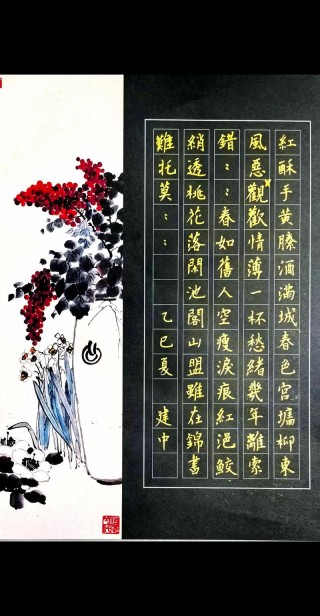 紅酥手黄縢酒滿城春色宮墻柳東
風惡觀歡情薄一杯愁緒幾年離索
錯：：春如舊人空瘦淚痕紅浥鮫
綃透桃花落閑池閣山盟雖在錦書
難托莫：： 乙巳夏 建中